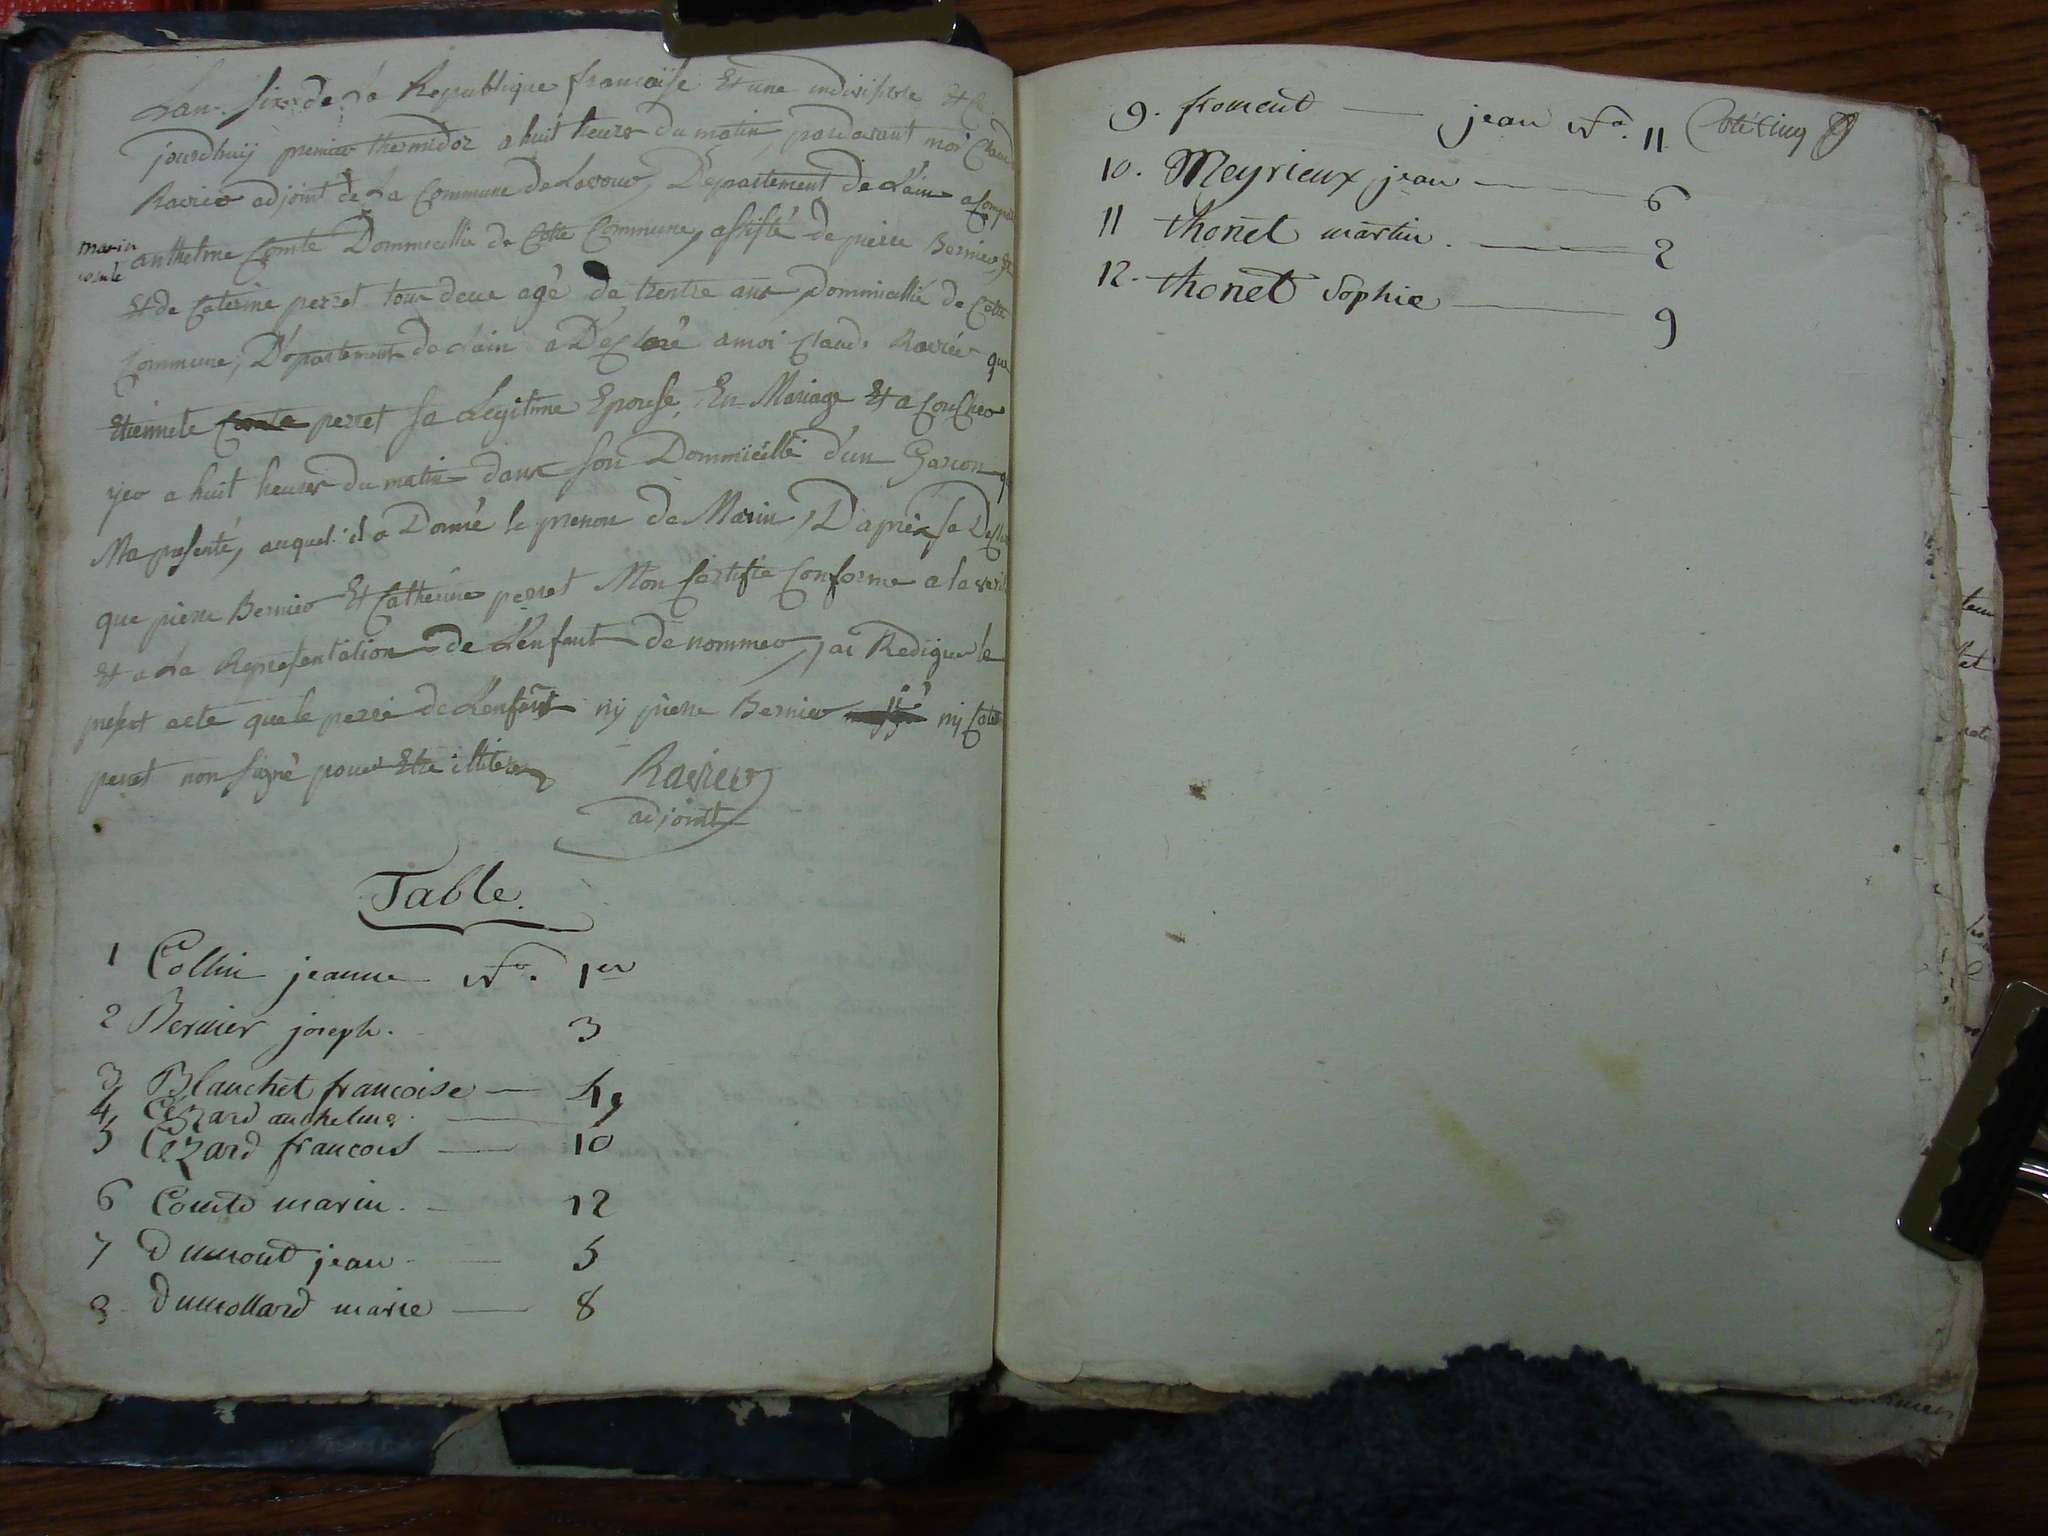 Lan six de la Republique francaise Et une indivisible Et ce
jourdhuij premier thermidor a huit heures du matin, pardavant moi Claude
Ravier adjoint de La Commune de Lavour, Departement de L'ain a Comparu
marin
comte
anthelme Comte Dommicillie de Cette Commune, assisté de pierre Bernier
Et de Caterine perret tous deux agé de trentre ans, Dommicillié de Cette
Commune, Departement de L'ain a Declaré a moi Claude Ravier que
Etiennete Comte perret sa Legitime Epouse, En Mariage Et a Coucher
yer a huit heures du matin dans son Dommicillié d'un Garcon
Ma presenté, auquel il a Donné le prenom de Marin, D'aprés sa
que pierre Bernier Et Catherine perret Mon Certifié Conforme a la
Et a La Representation de L'enfant de nommer, jai Rediger le
presest acte que le perre de L'enfant nij pierre Bernier nij
perret non signé pour Etre illitere
Ravier
adjoint
Table.
1 Collin jeanne No. 1er
2 Bernier joseph. 3
3 Blanchet francoise — 4
4 Cezard anthelme. — 7
5 Cezard francois — 10
6 Comte marin. — 12
7 Dumont jean — 5
8 Dumollard marie — 8
9. froment — jean No. 11 Coté Cinq
10. Meyrieux jean — 6
11 thonet martin. — 2
12. thonet Sophie — 9